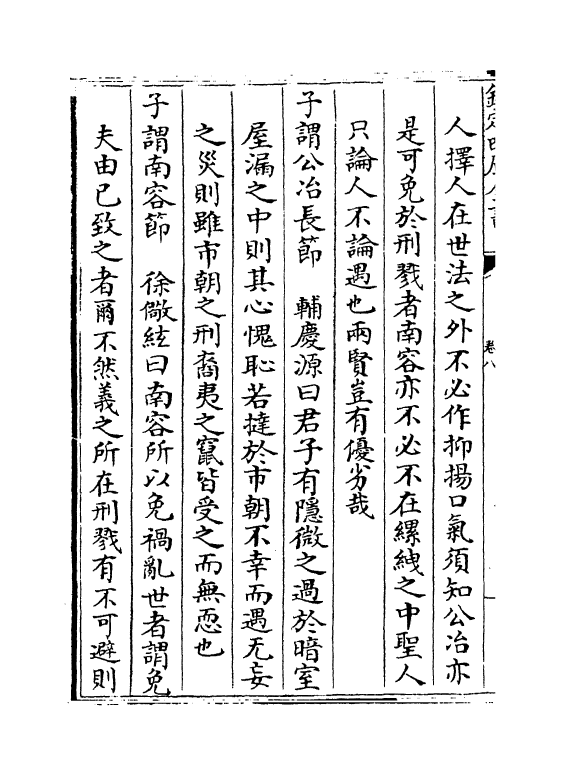 欽定四庫全書
卷八
人擇人在世法之外不必作抑揚口氣須知公冶亦
是可免於刑戮者南容亦不必不在縲絏之中聖人
只論人不論遇也兩賢豈有優劣哉
子謂公冶長節　輔慶源曰君子有隱微之過於暗室
屋漏之中則其心愧恥若撻於市朝不幸而遇无妄
之災則雖市朝之刑裔夷之竄皆受之而無恧也
子謂南容節　徐儆絃曰南容所以免禍亂世者謂免
夫由已致之者爾不然義之所在刑戮有不可避則